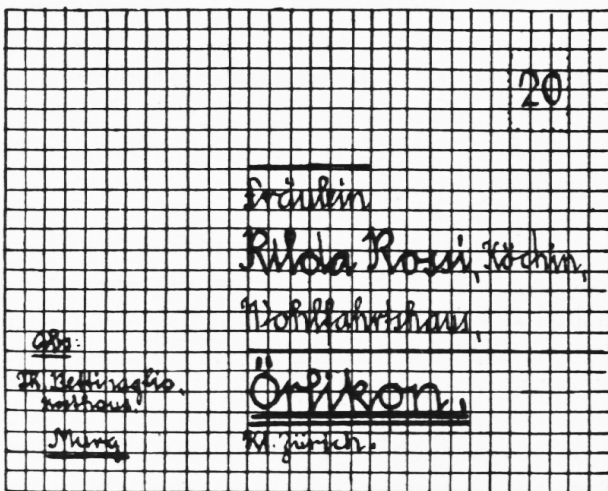 20
Fräulein
Rilda Rossi, Köchin,
Wohlfahrtshaus,
Örlikon.
Kt. Zürich.
Abs:
Th.
Kosthaus.
Murg